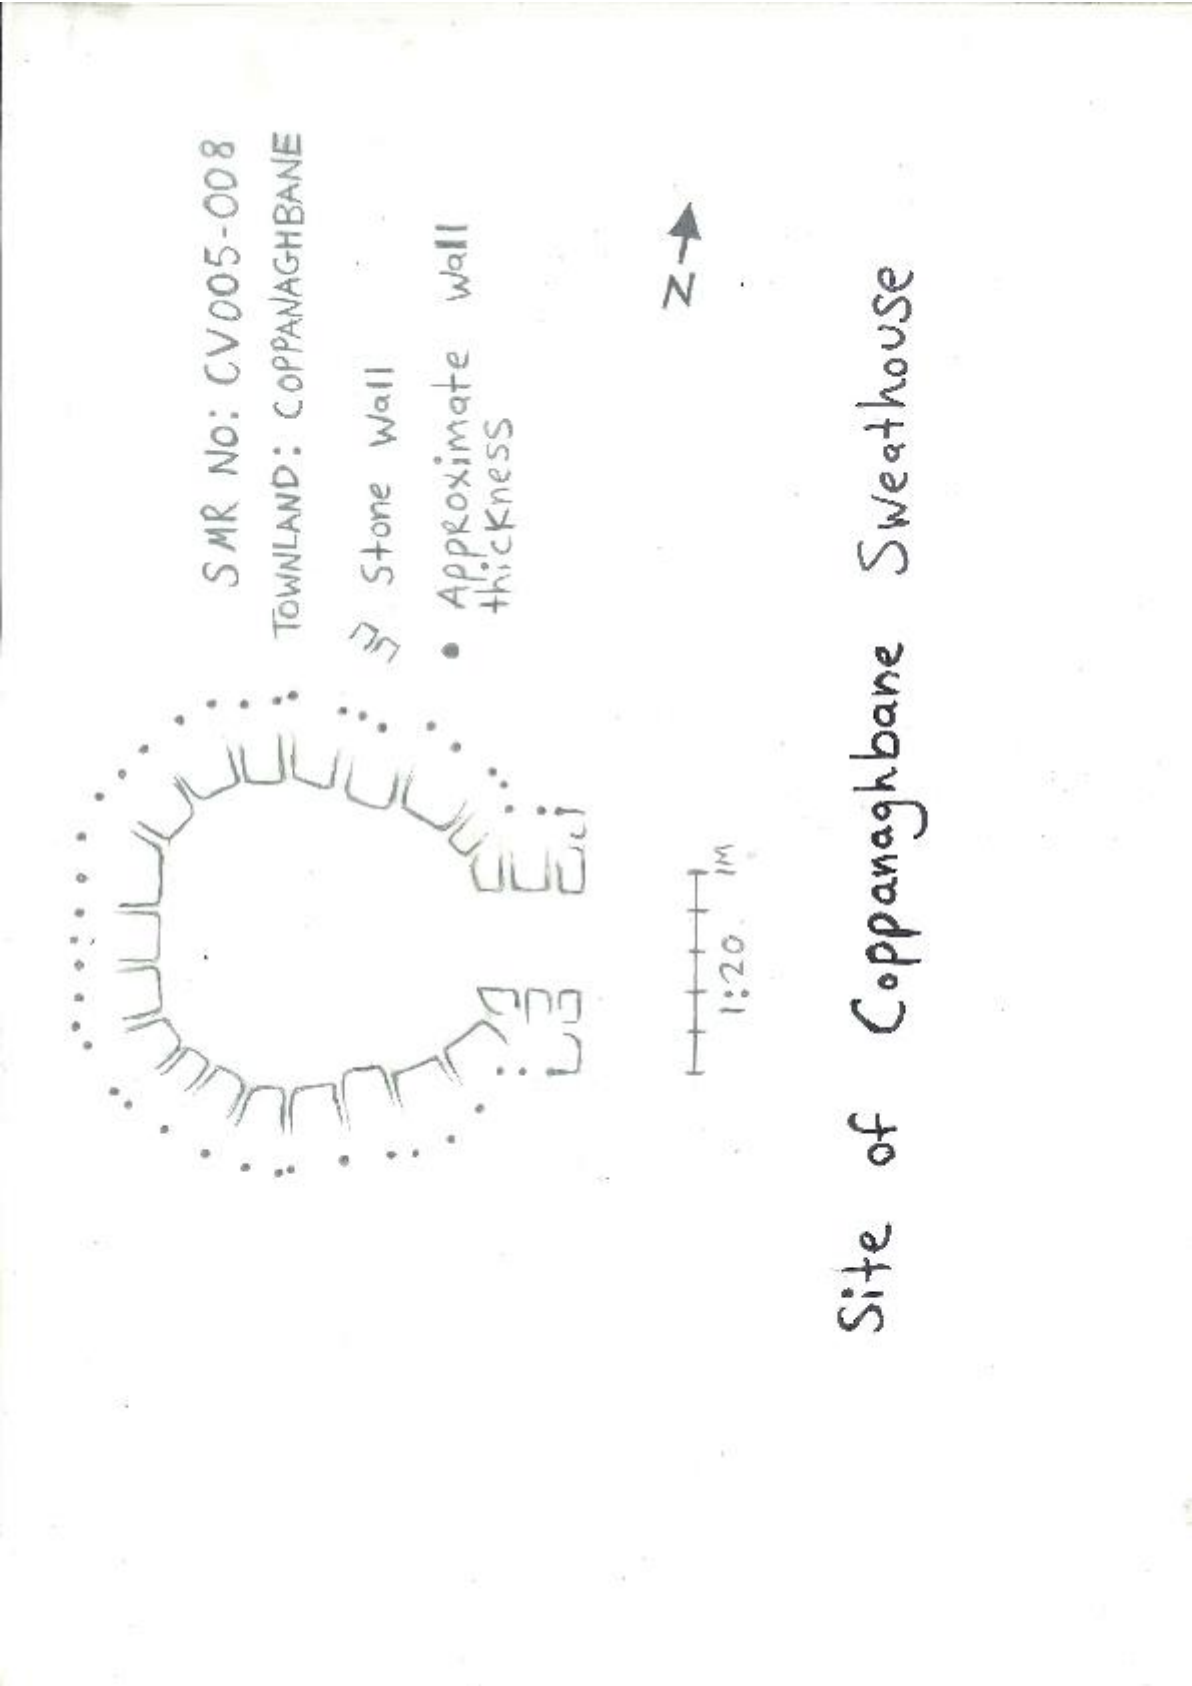 SMR No: CV005-008
TOWNLAND: COPPANAGHBANE
Stone Wall
Approximate Wall
thickness
N
1M
1:20
Site of Coppanaghbane Sweathouse